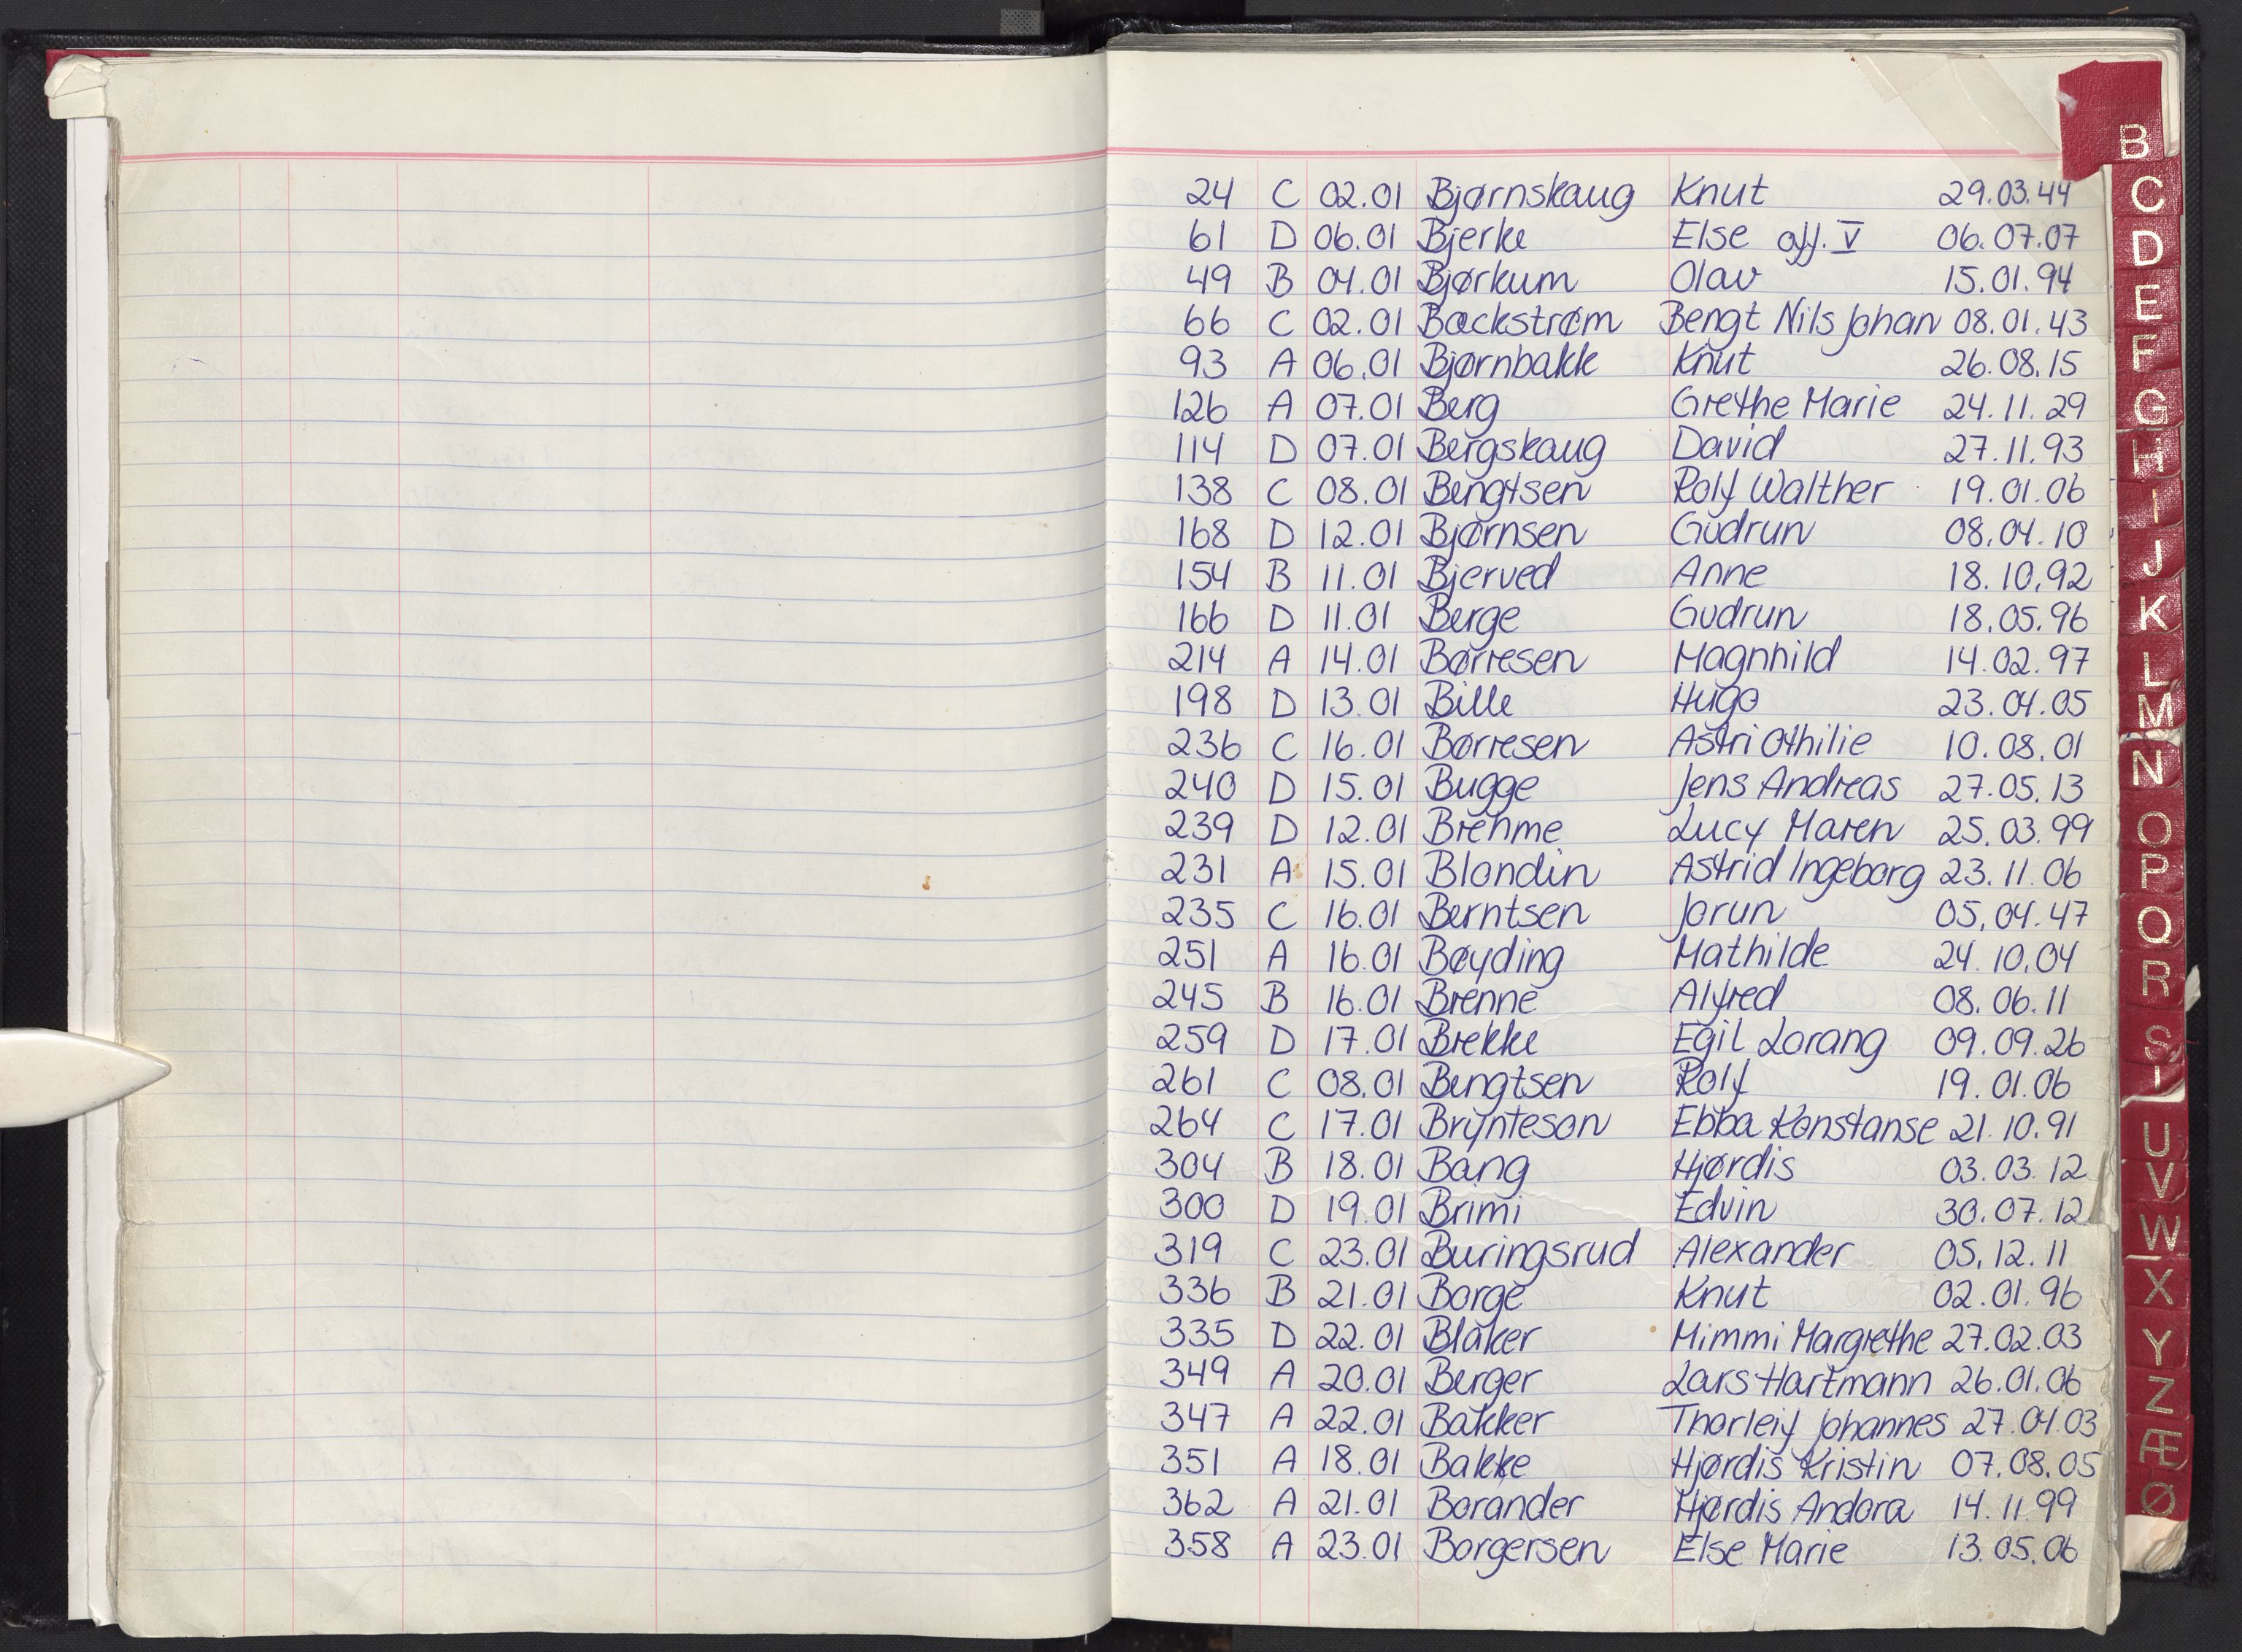 24 C 02.01 Bjørnskaug Knut 29.03.44
61 D 06.01 Bjerke Else aff. V 06.07.07
49 B 04.01 Bjørkum Olav 15.01.94
66 C 02.01 Backstrøm Bengt Nils Johan 08.01.43
93 A 06.01 Bjørnbakk Knut 26.08.15
126 A 07.01 Berg Grethe Marie 24.11.29
114 D 07.01 Bergskaug David 27.11.93
138 C 08.01 Bengtsen Rolf Walther 19.01.06
168 D 12.01 Bjørnsen Gudrun 08.04.10
154 B 11.01 Bjerved Anne 18.10.92
166 D 11.01 Berge Gudrun 18.05.96
214 A 14.01 Børresen Magnhild 14.02.97
198 D 13.01 Bille Hugo 23.04.05
236 C 16.01 Børresen Astri Othilie 10.08.01
240 D 15.01 Bugge Jens Andreas 27.05.13
239 D 12.01 Brehme Lucy Maren 25.03.99
231 A 15.01 Blondin Astrid Ingeborg 23.11.06
235 C 16.01 Berntsen Jorun 05.04.47
251 A 16.01 Bøyding Mathilde 24.10.04
245 B 16.01 Brenne Alfred 08.06.11
259 D 17.01 Brekke Egil Lorang 09.09.26
261 C 08.01 Bengtsen Rolf 19.01.06
264 C 17.01 Brynteson Ebba Konstanse 21.10.91
304 B 18.01 Bang Hjørdis 03.03.12
300 D 19.01 Brimi Edvin 30.07.12
319 C 23.01 Buringsrud Alexander 05.12.11
336 B 21.01 Borge Knut 02.01.96
335 D 22.01 Blaker Mimmi Margrethe 27.02.03
349 A 20.01 Berger Lars Hartmann 26.01.06
347 A 22.01 Bakker Thorleif Johannes 27.04.03
351 A 18.01 Bakke Hjørdis Kristin 07.08.05
362 A 21.01 Borander Hjørdis Andora 14.11.99
358 A 23.01 Borgersen Else Marie 13.05.06
B
C
D
E
F
G
H
I
J
K
L
M
N
O
P
Q
R
S
U
V
W
X
Y
Z
Æ
Ø